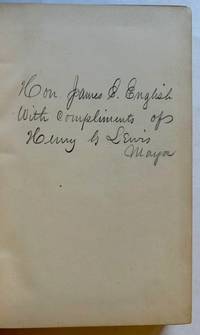 Hon. James E. English
With Compliments of
Henry G Lewis
Mayor